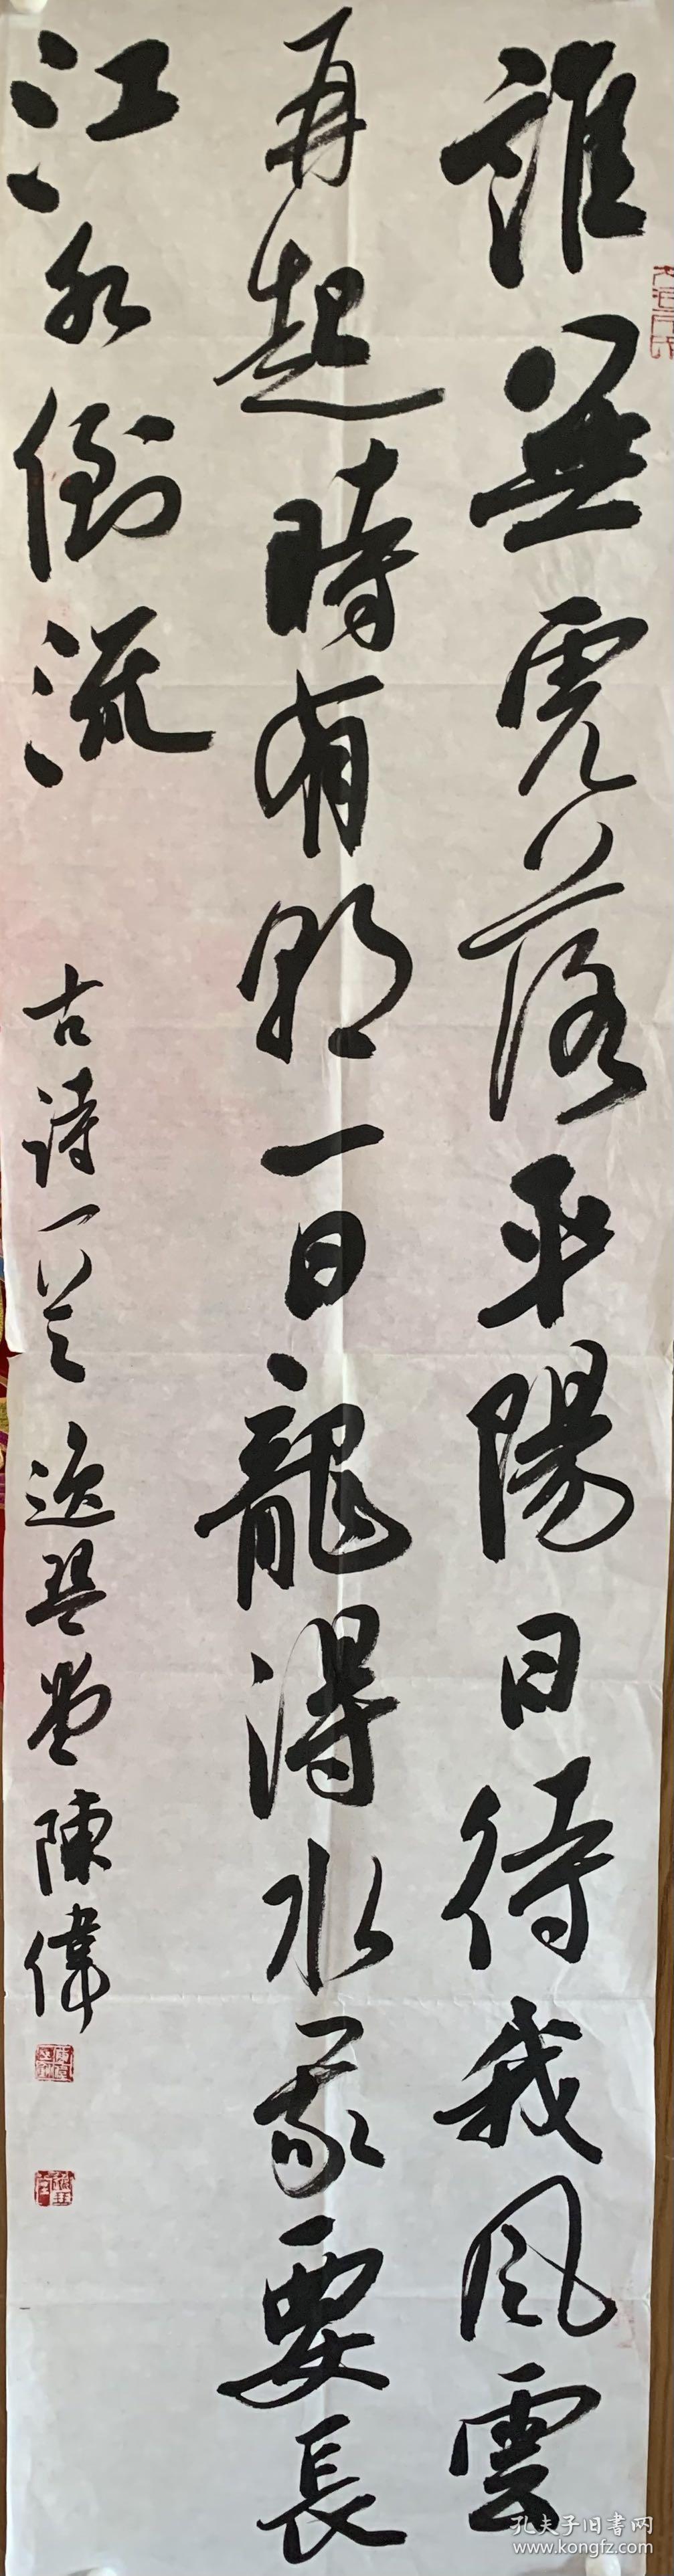 誰無虎落平陽日待我風雲
再起時有朝一日龍得水我要長
江水倒流
古詩一首 逸琴堂 陳偉
孔夫子旧書网
www.kongfz.com